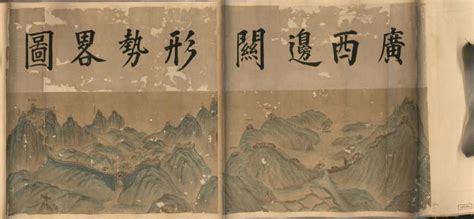 廣西邊關形勢畧圖